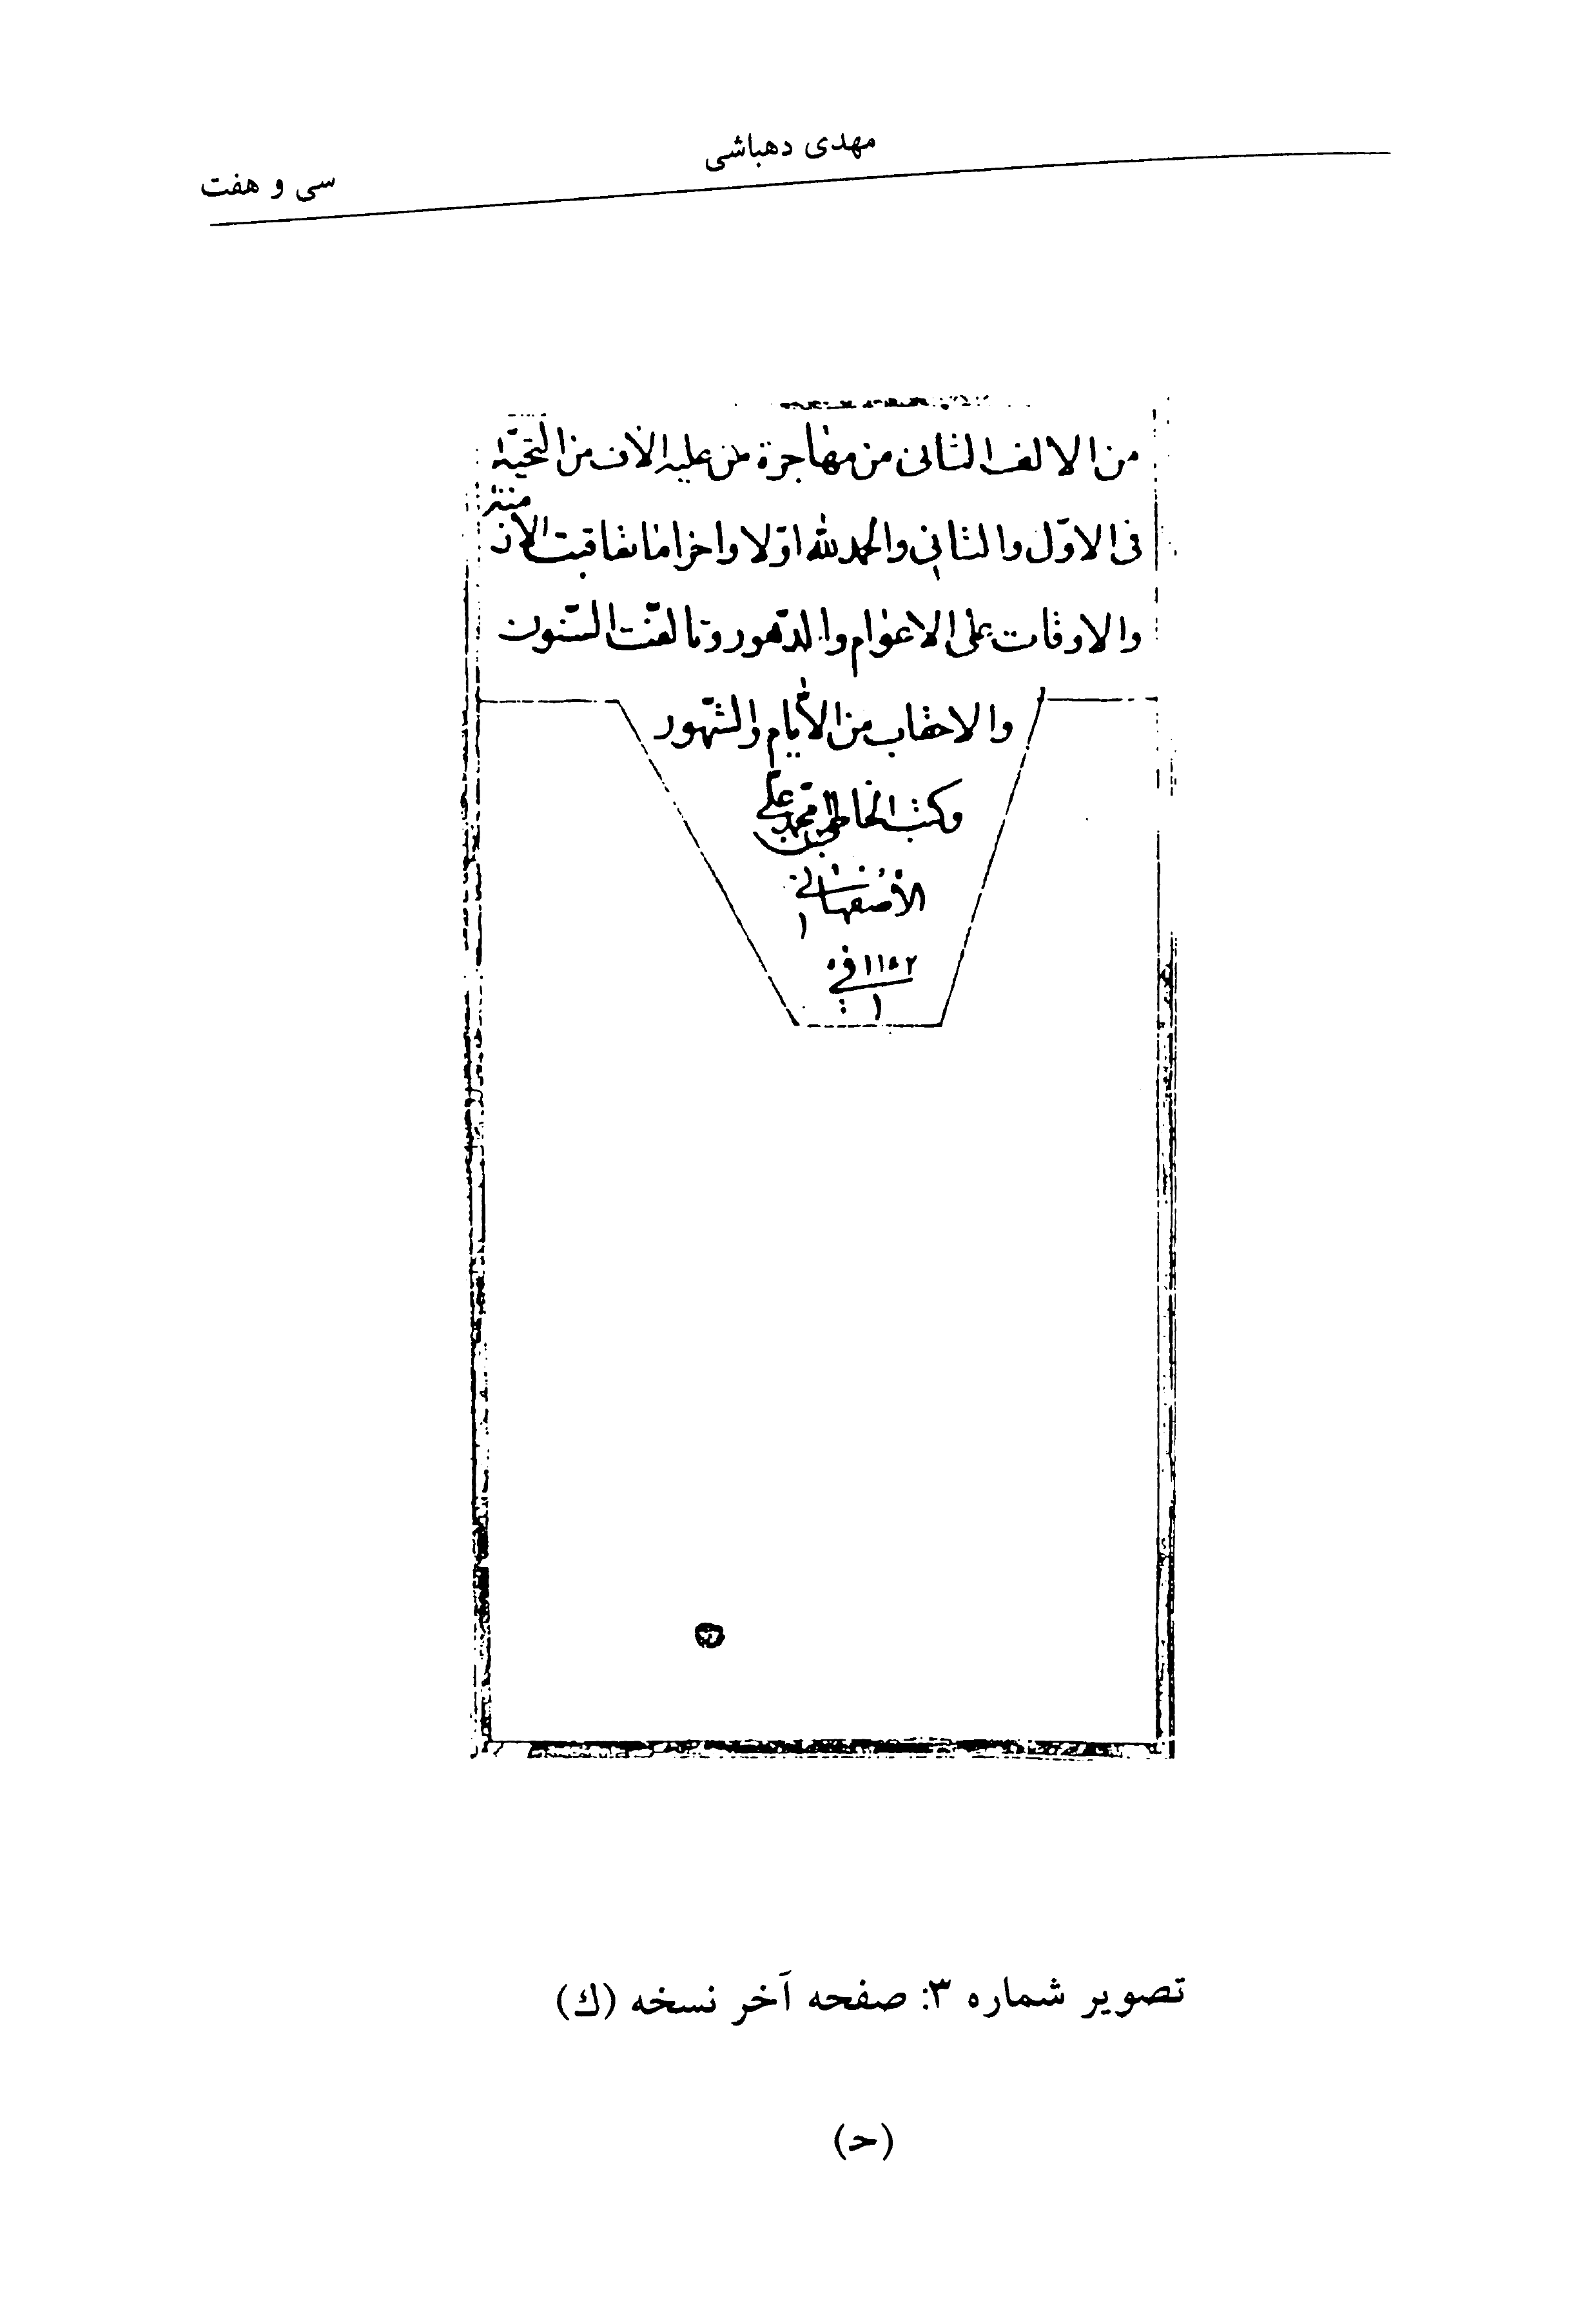 مهدی دهباشی
سی و هفت
من الالف الثانی من مهاجرة من علیه الآف من التحیة
فی الاوّل والثانی والحمد لله اوّلا واخرا ما تعاقبت
والاوقات علی الاعوام والدّهور وتالفت السّنون
والاحقاب من الأیام والشهور
وکتب الخاطی محمد علی
الأصفهانی
فی ۱۱۵۲
تصویر شماره ۳: صفحه آخر نسخه (ك)
(حـ)